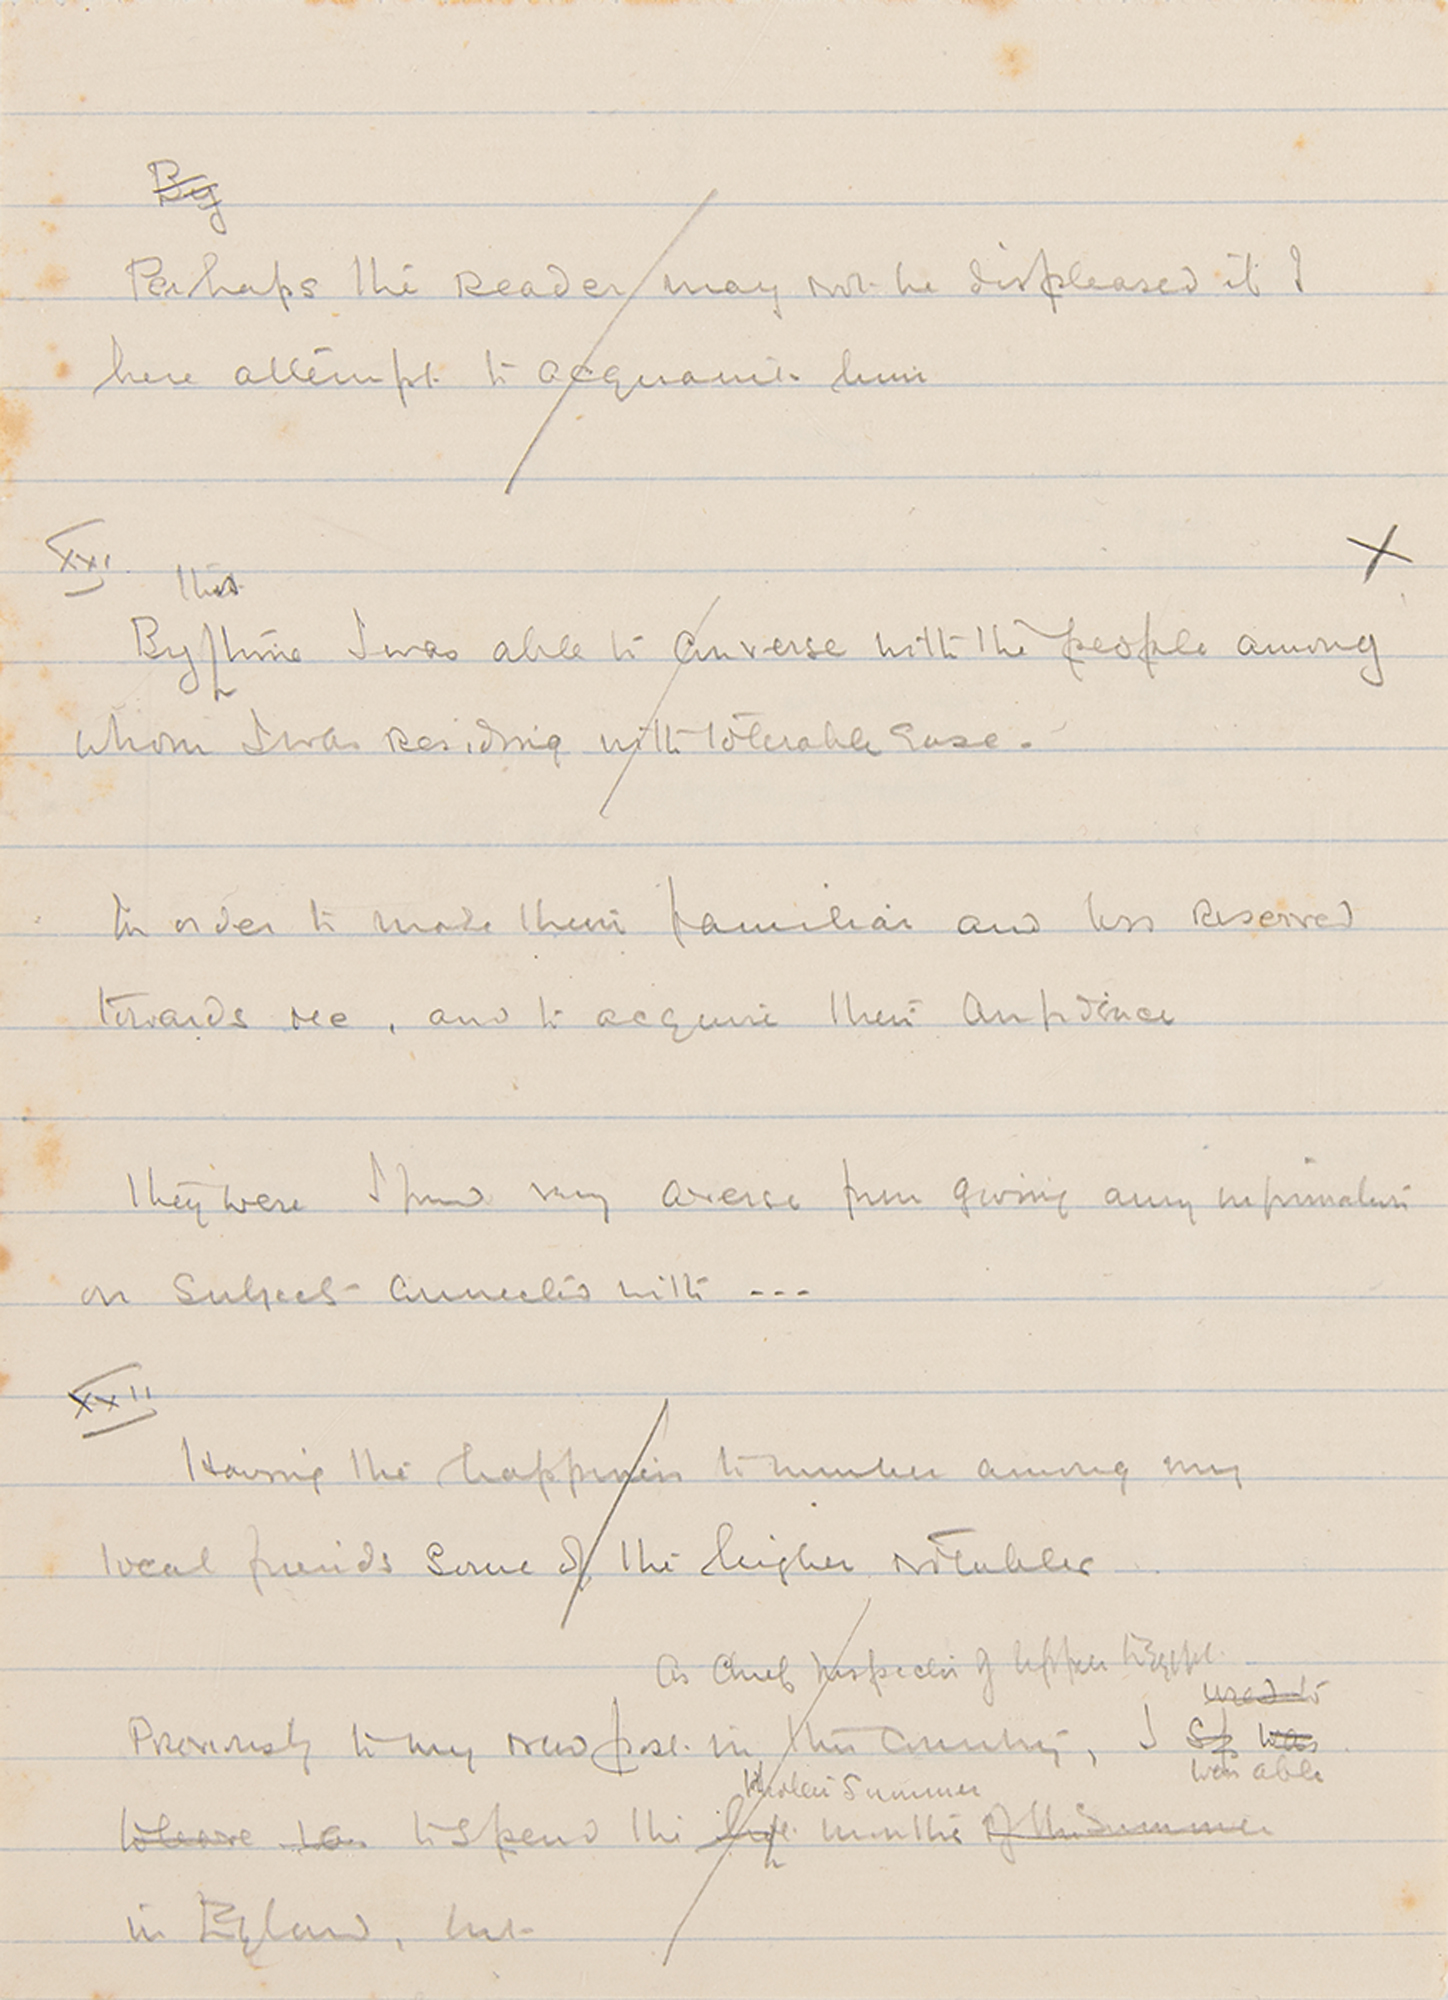 By
Perhaps the reader may not be displeased if I
here attempt to acquaint him
XXI
this
By time I was able to converse with the people among
whom I was residing with tolerable ease.
In order to make them familiar and less reserved
towards me, and to acquire their confidence
They were I found very averse from giving any information
on subject connected with ---
XXII
Having the happiness to number among my
local friends some of the higher notables
As Chief Inspector of Upper Egypt
used to
Previously to my new post in this country, I sp was
was able
to leave to spend the months of the summer
Summer
in England, but